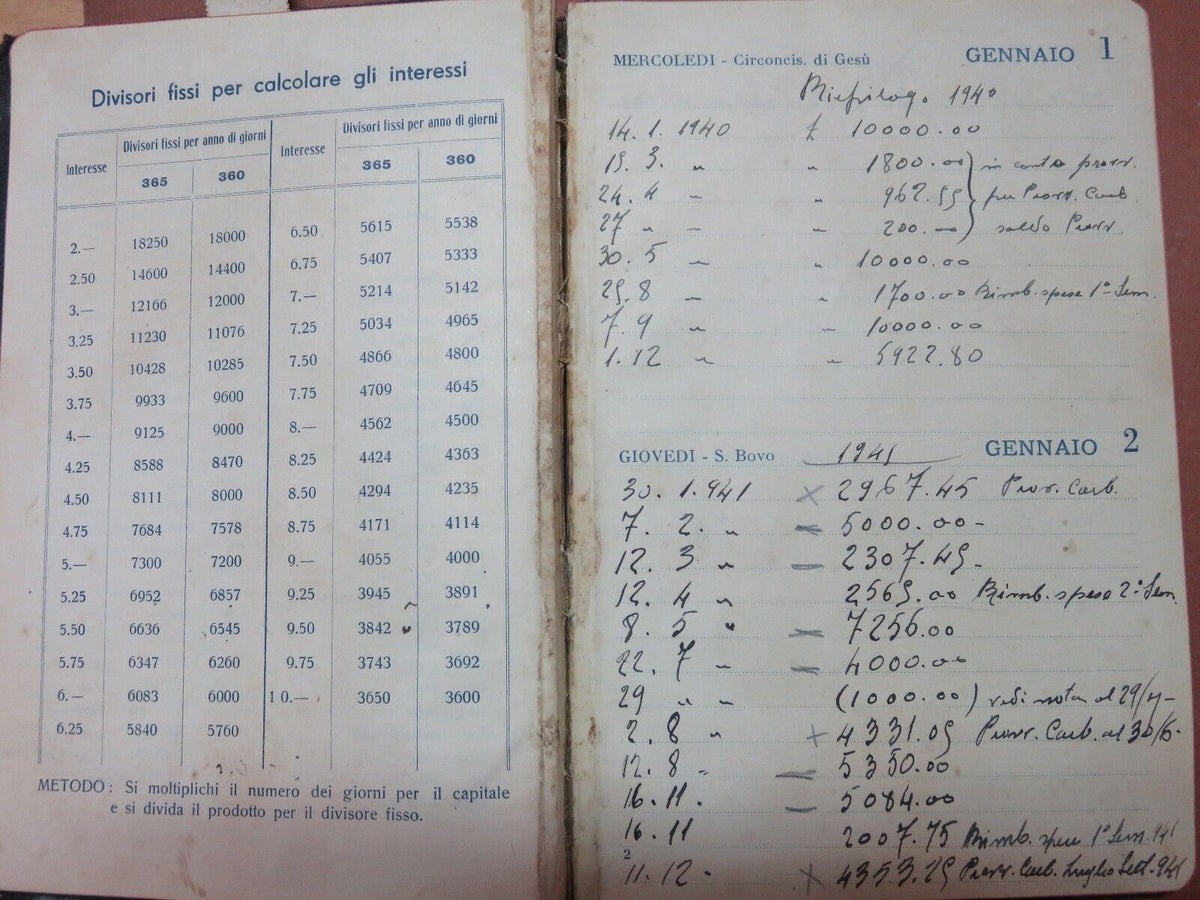 Divisori fissi per calcolare gli interessi
Interesse Divisori fissi per anno di giorni Interesse Divisori fissi per anno di giorni
365 360 365 360
2.— 18250 18000 6.50 5615 5538
2.50 14600 14400 6.75 5407 5333
3.— 12166 12000 7.— 5214 5142
3.25 11230 11076 7.25 5034 4965
3.50 10428 10285 7.50 4866 4800
3.75 9933 9600 7.75 4709 4645
4.— 9125 9000 8.— 4562 4500
4.25 8588 8470 8.25 4424 4363
4.50 8111 8000 8.50 4294 4235
4.75 7684 7578 8.75 4171 4114
5.— 7300 7200 9.— 4055 4000
5.25 6952 6857 9.25 3945 3891
5.50 6636 6545 9.50 3842 3789
5.75 6347 6260 9.75 3743 3692
6.— 6083 6000 10.— 3650 3600
6.25 5840 5760
METODO: Si moltiplichi il numero dei giorni per il capitale
e si divida il prodotto per il divisore fisso.
MERCOLEDI - Circoncis. di Gesù GENNAIO 1
Riepilog. 1940
14. 1. 1940 £ 10000.00
19. 3. " " 1800.00 in conto provv.
24. 4 " " 967.55 per Provv. Carb.
27 " " " 200.00 saldo Provv.
30. 5 " " 10000.00
25. 8 " " 1700.00 Rimb. spese 1° Sem.
7. 9 " " 10000.00
1. 12 " " 5922.80
GIOVEDI - S. Bovo 1941 GENNAIO 2
30. 1. 941 × 2967.45 Provv. Carb.
7. 2. " — 5000.00 -
12. 3 " — 2307.45 -
12. 4 " 2565.00 Rimb. spese 2° Sem.
8. 5 " — 7256.00
22. 7 " — 4000.00
29 " " (1000.00) vedi nota al 29/7 -
2. 8 " + 4331.05 Provv. Carb. al 30/6 -
12. 8 " — 5350.00
16. 11. — 5084.00
16. 11 2007.75 Rimb. spese 1° Sem. 941
2
11. 12 " × 4353.25 Provv. Carb. Luglio Sett. 941